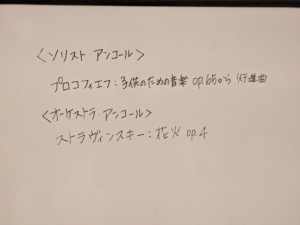 <ソリスト アンコール>
プロコフィエフ:子供のための音楽 op.65から 行進曲
<オーケストラ・アンコール>
ストラヴィンスキー:花火 op.4